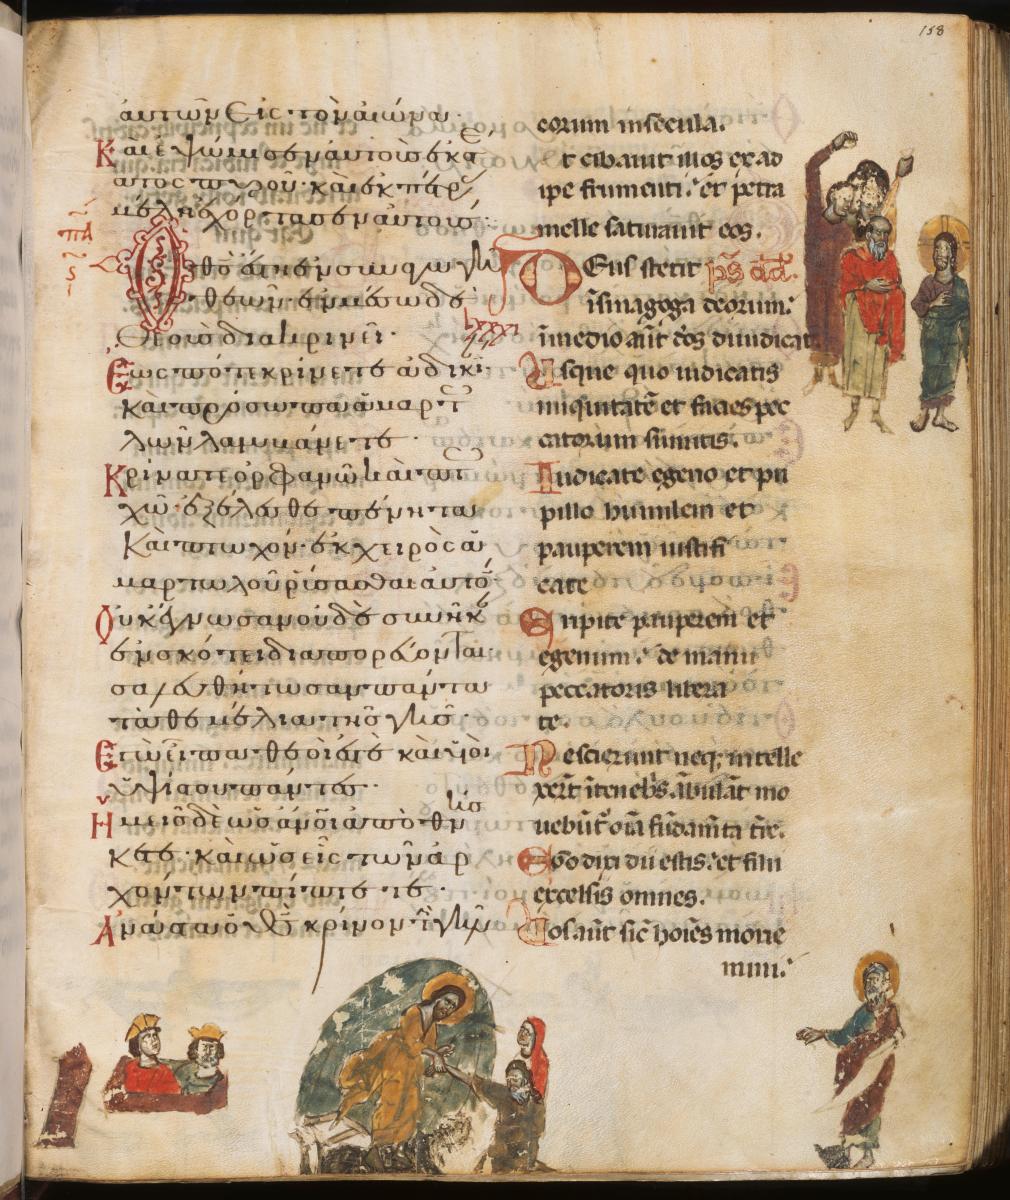 158
ἀυτῶν εἰς τὸν αἰῶνα
Καὶ ἐψώμισεν αὐτοὺς ἐκ στέ
ατος πυροῦ· καὶ ἐκ πέτρ
μέλη ἐχόρτασεν αὐτούς
πα
Ο θεὸς ἔστη ἐν συναγωγῆ
θεῶν· ἐν μέσω δὲ
θεοὺς διακρίνει·
Εως πότε κρίνετε ἀδικί
καὶ πρόσωπα ἁμαρτ
λῶν λαμβάνετε·
Κρίνατε ὀρφανῶ καὶ πτ
χῶ· ἐξέλεσθε πένητα
Καὶ πτωχὸν· ἐκ χειρὸς ἁ
μαρτωλοῦ ῥύσασθαι αὐτό
Ουκ ἔγνωσαν οὐδὲ συνῆκ
ἐν σκότει διαπορεύονται
σαλευθήτωσαν πάντα
τὰ θεμέλια τῆς γῆς·
Εγὼ εἶπα· θεοὶ ἐστὲ καὶ υἱοὶ
ὑψίστου πάντες·
Ημεῖς δὲ ὡς ἄνοι ἀποθνήσ
κετε· καὶ ὡς εἷς τῶν ἀρ
χόντων πίπτετε·
Ανάστα ὁ θς κρῖνον τὴν γῆν
eorum in secula.
Et cibauit illos ex ad
ipe frumenti: et petra
melle saturauit eos.
Deus stetit ps dd.
lxxxi
ī sinagoga deorum:
ī medio aūt dōs diiudicat
Usque quo iudicatis
iniquitatē et facies pec
catorum sumitis.
Iudicate egeno et pu
pillo humilem et
pauperem iustifi
cate
Eripite pauperem et
egenum: de manu
peccatoris libera
te.
Nescierunt neq; intelle
xer̄t ī tenebs ābulāt mo
uebūt oīa fūdam̄ta t̄re.
Ego dixi dii estis: et filii
excelsis omnes.
Uos aūt sic̄ hoīes morie
mini: